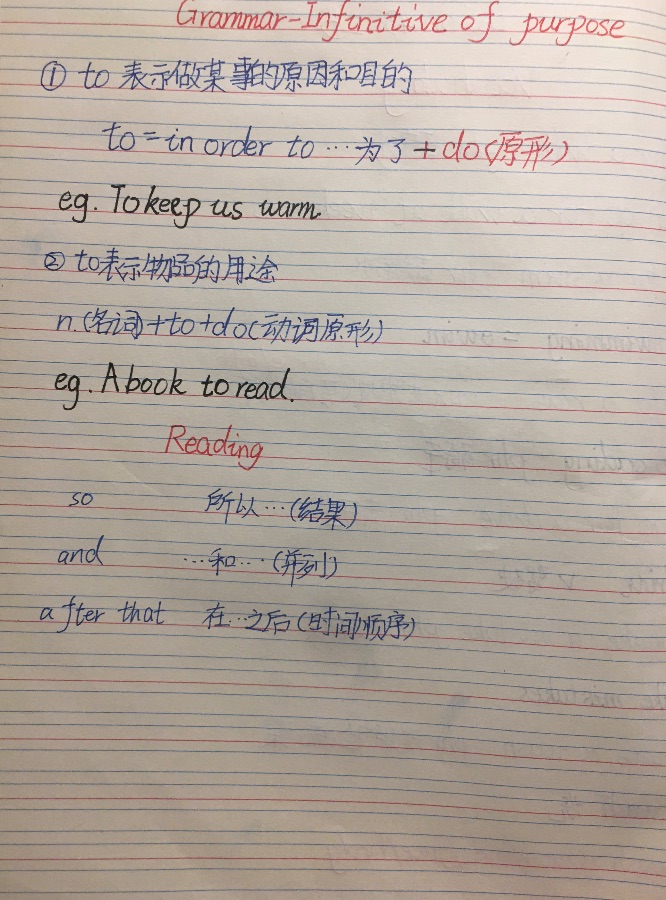 Grammar-Infinitive of purpose
① to 表示做某事的原因和目的
to=in order to …为了+do(原形)
eg. To keep us warm.
② to表示物品的用途
n.(名词)+to+do(动词原形)
eg. A book to read.
Reading
so 所以…(结果)
and …和…(并列)
after that 在…之后(时间顺序)